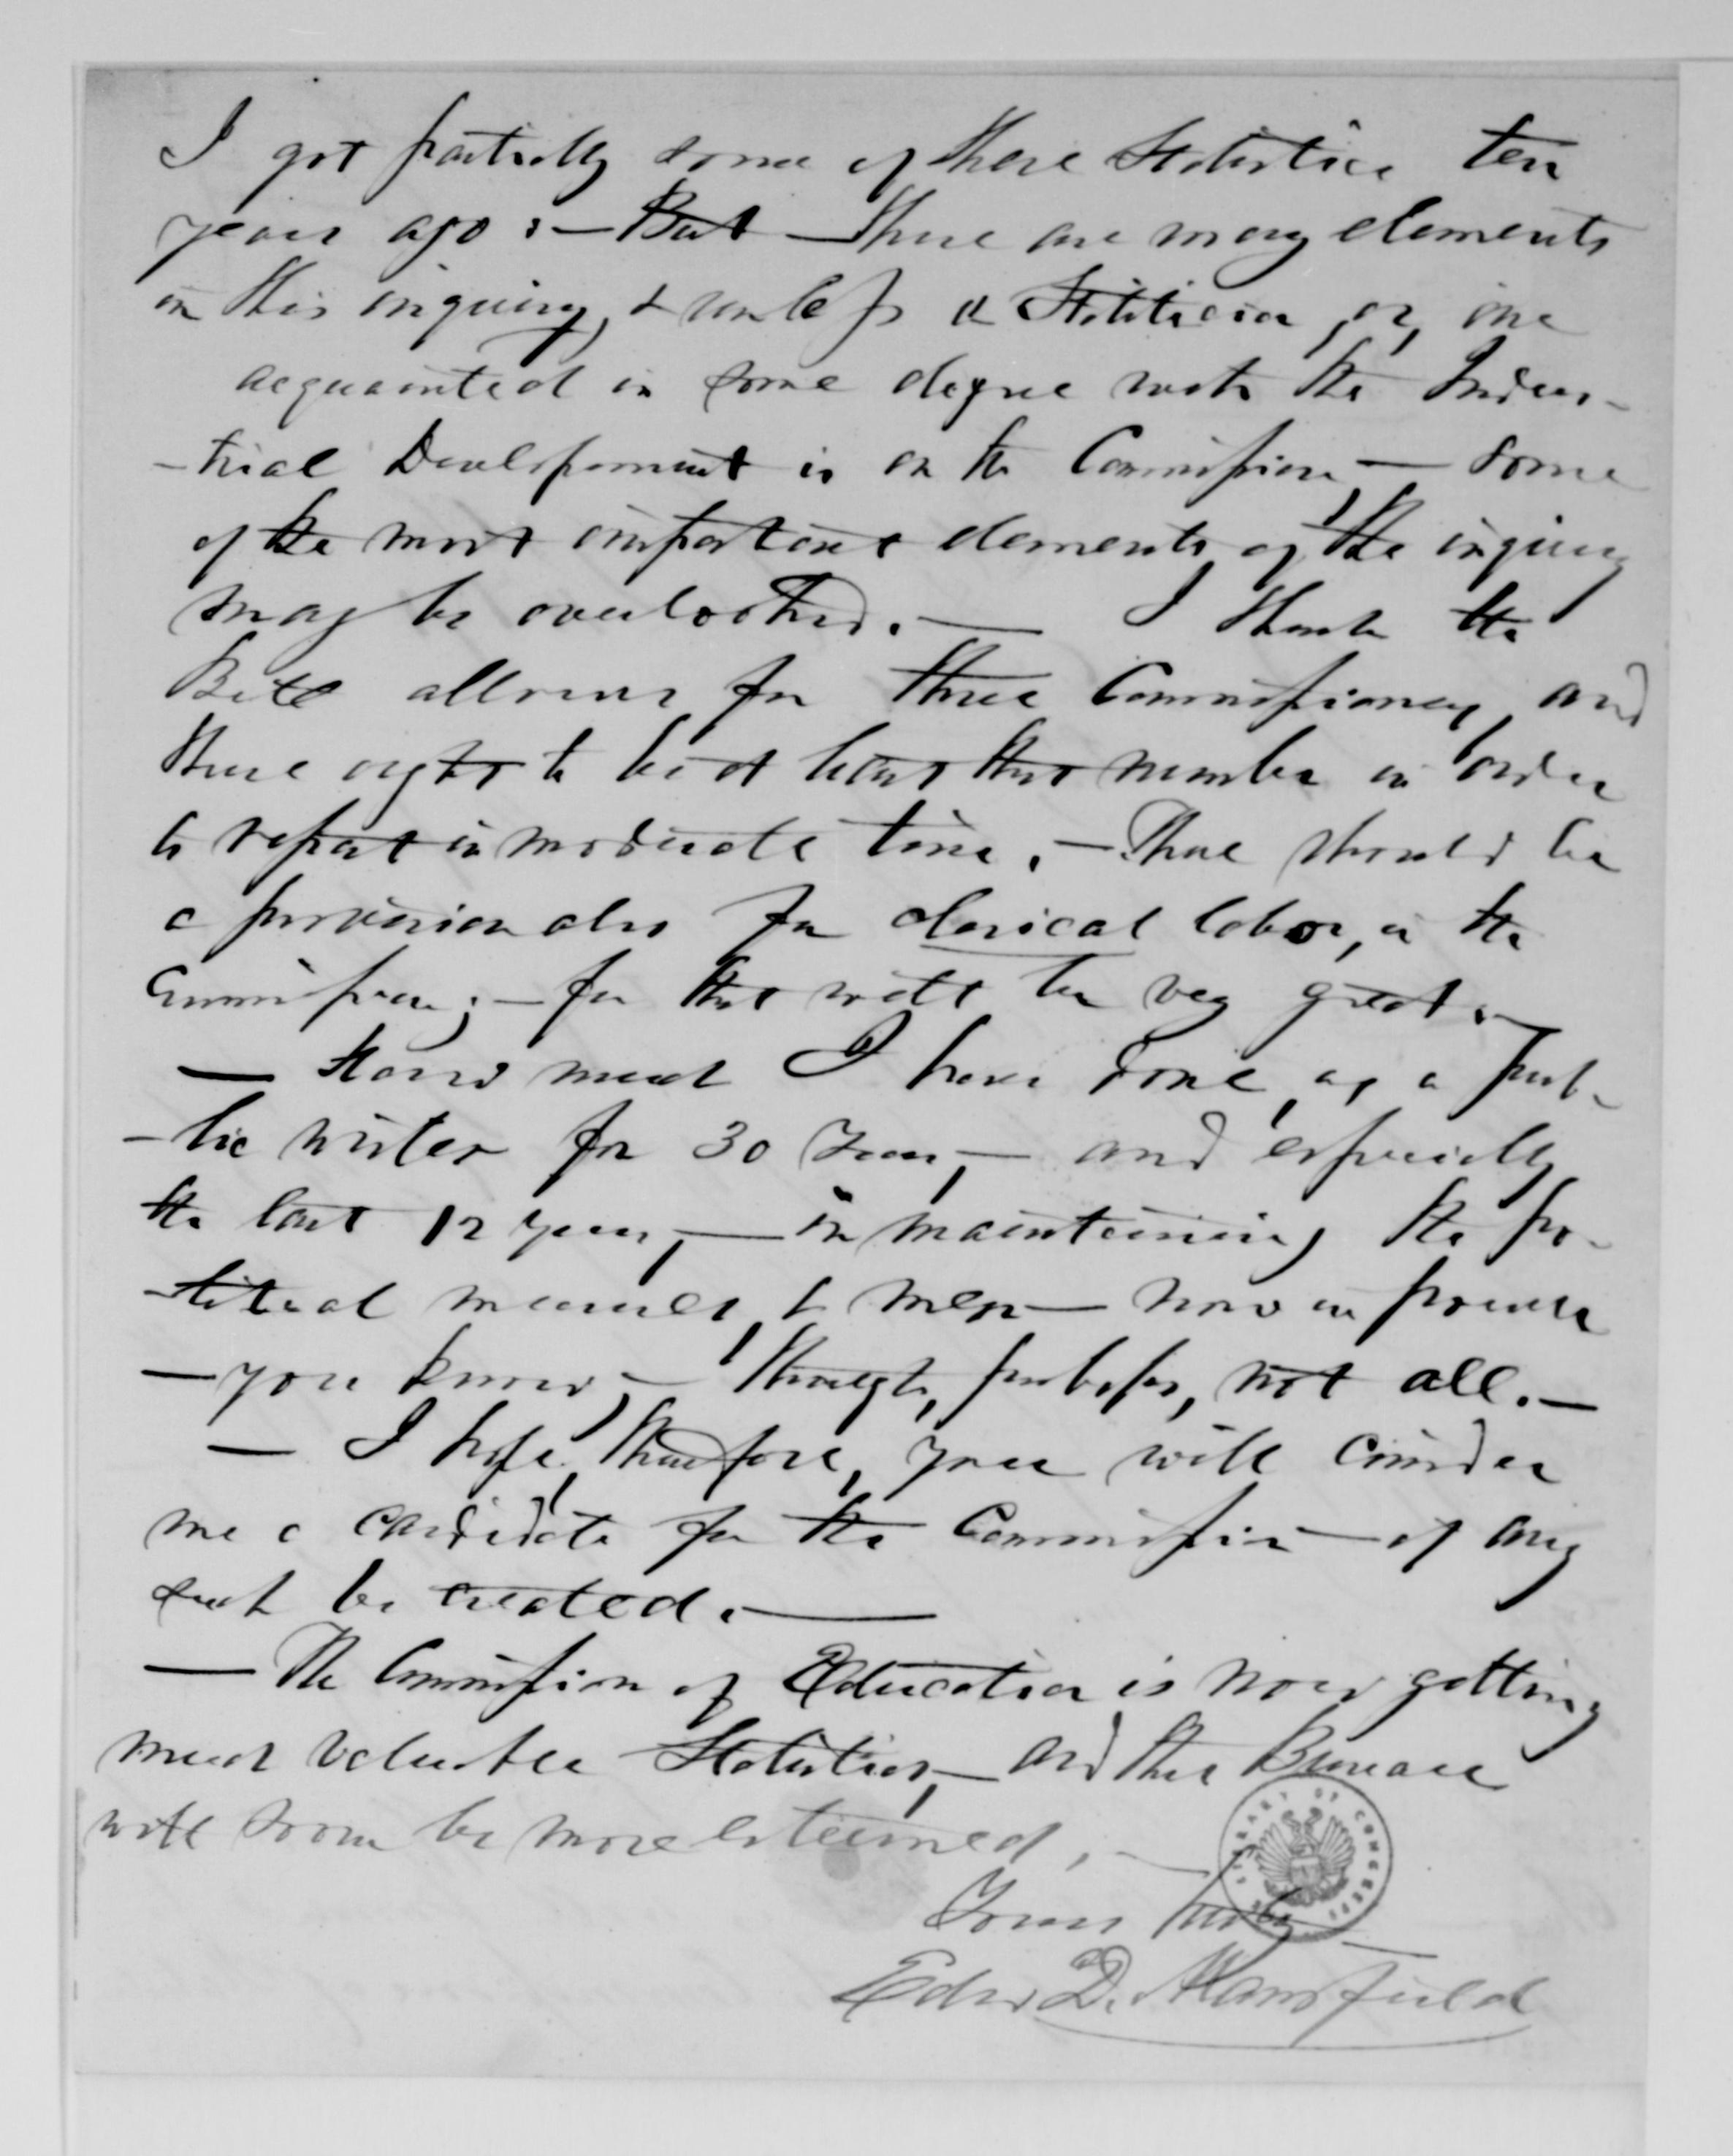 I got partially some of these Statistics ten
years ago :— But — there are many elements
in this inquiry, & unless a Statitician, or, one
acquainted in some degree with the Indus-
-trial Development is on the Commission, — some
of the most important elements of the inquiry
may be overlooked. — I think the
Bill allows for three Commissioners, and
there ought to be at least that number in order
to report in moderate time. — There should be
a provision also for clerical labor, in the
Commission; — for that will be very great. —
— How much I have done, as a pub-
-lic writer for 30 years, — and especially
the last 12 years, — in maintaining the po-
-litical measures, & men — now in power
— you know, — though, perhaps, not all. —
— I hope, therefore, you will consider
me a candidate for the Commission — if any
such be created. —
— The Commission of Education is now getting
much valuable Statistics, — and that Bureau
will soon be more esteemed, —
Yours truly —
Edwd D. Mansfield
LIBRARY OF CONGRESS